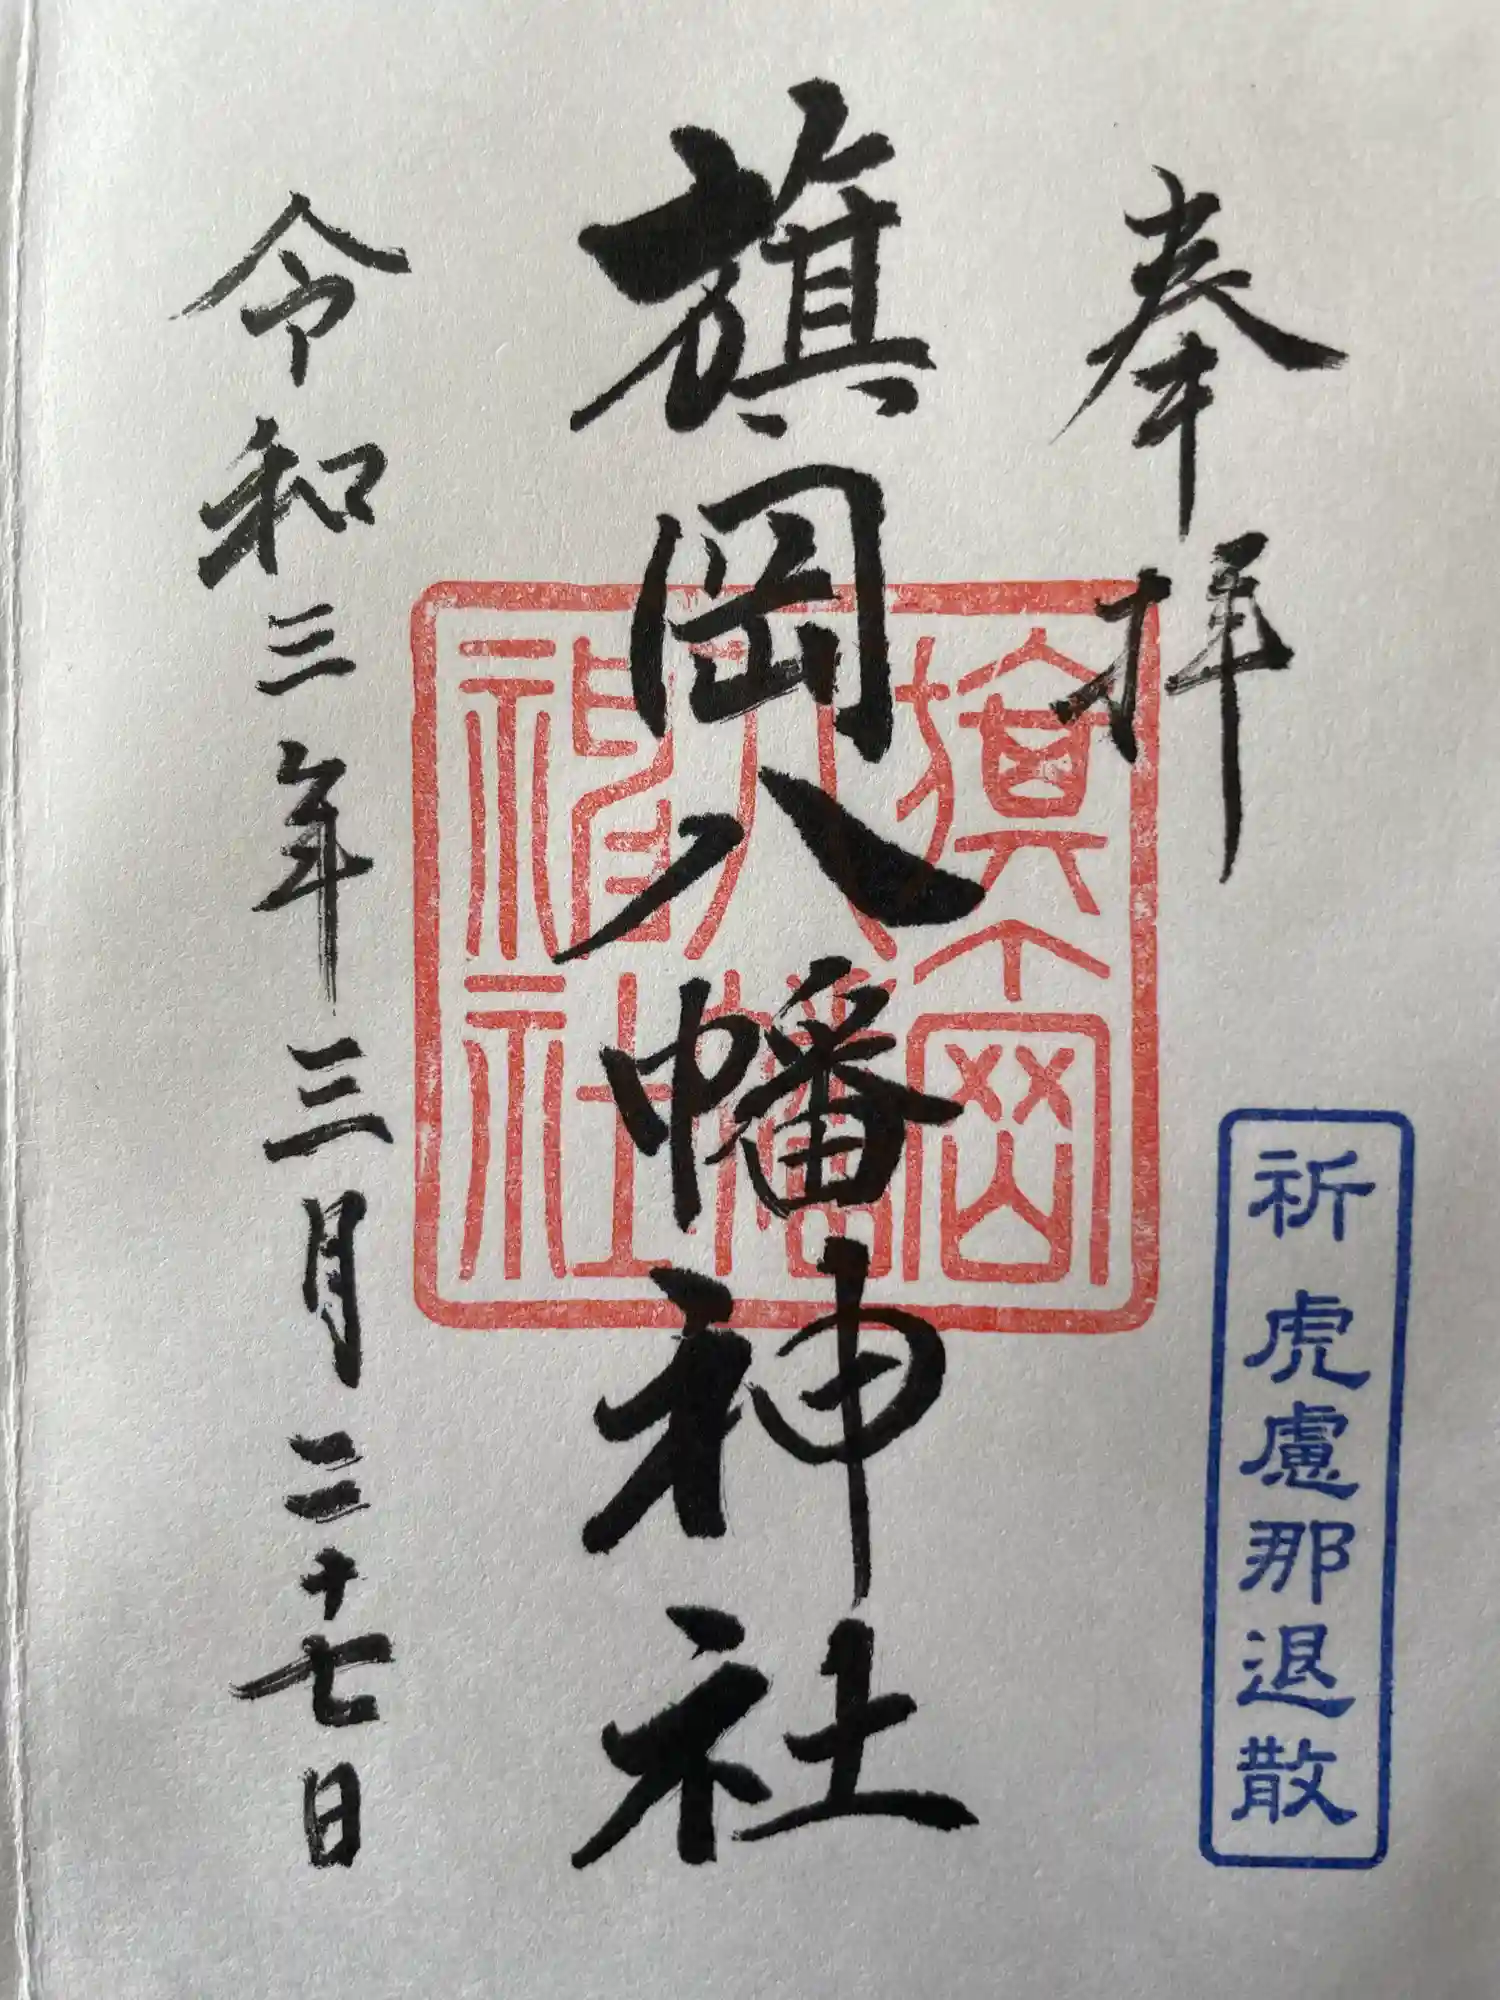 奉拝
祈 虎慮那退散
旗岡八幡神社
旗岡
八幡
神社
令和三年三月二十七日